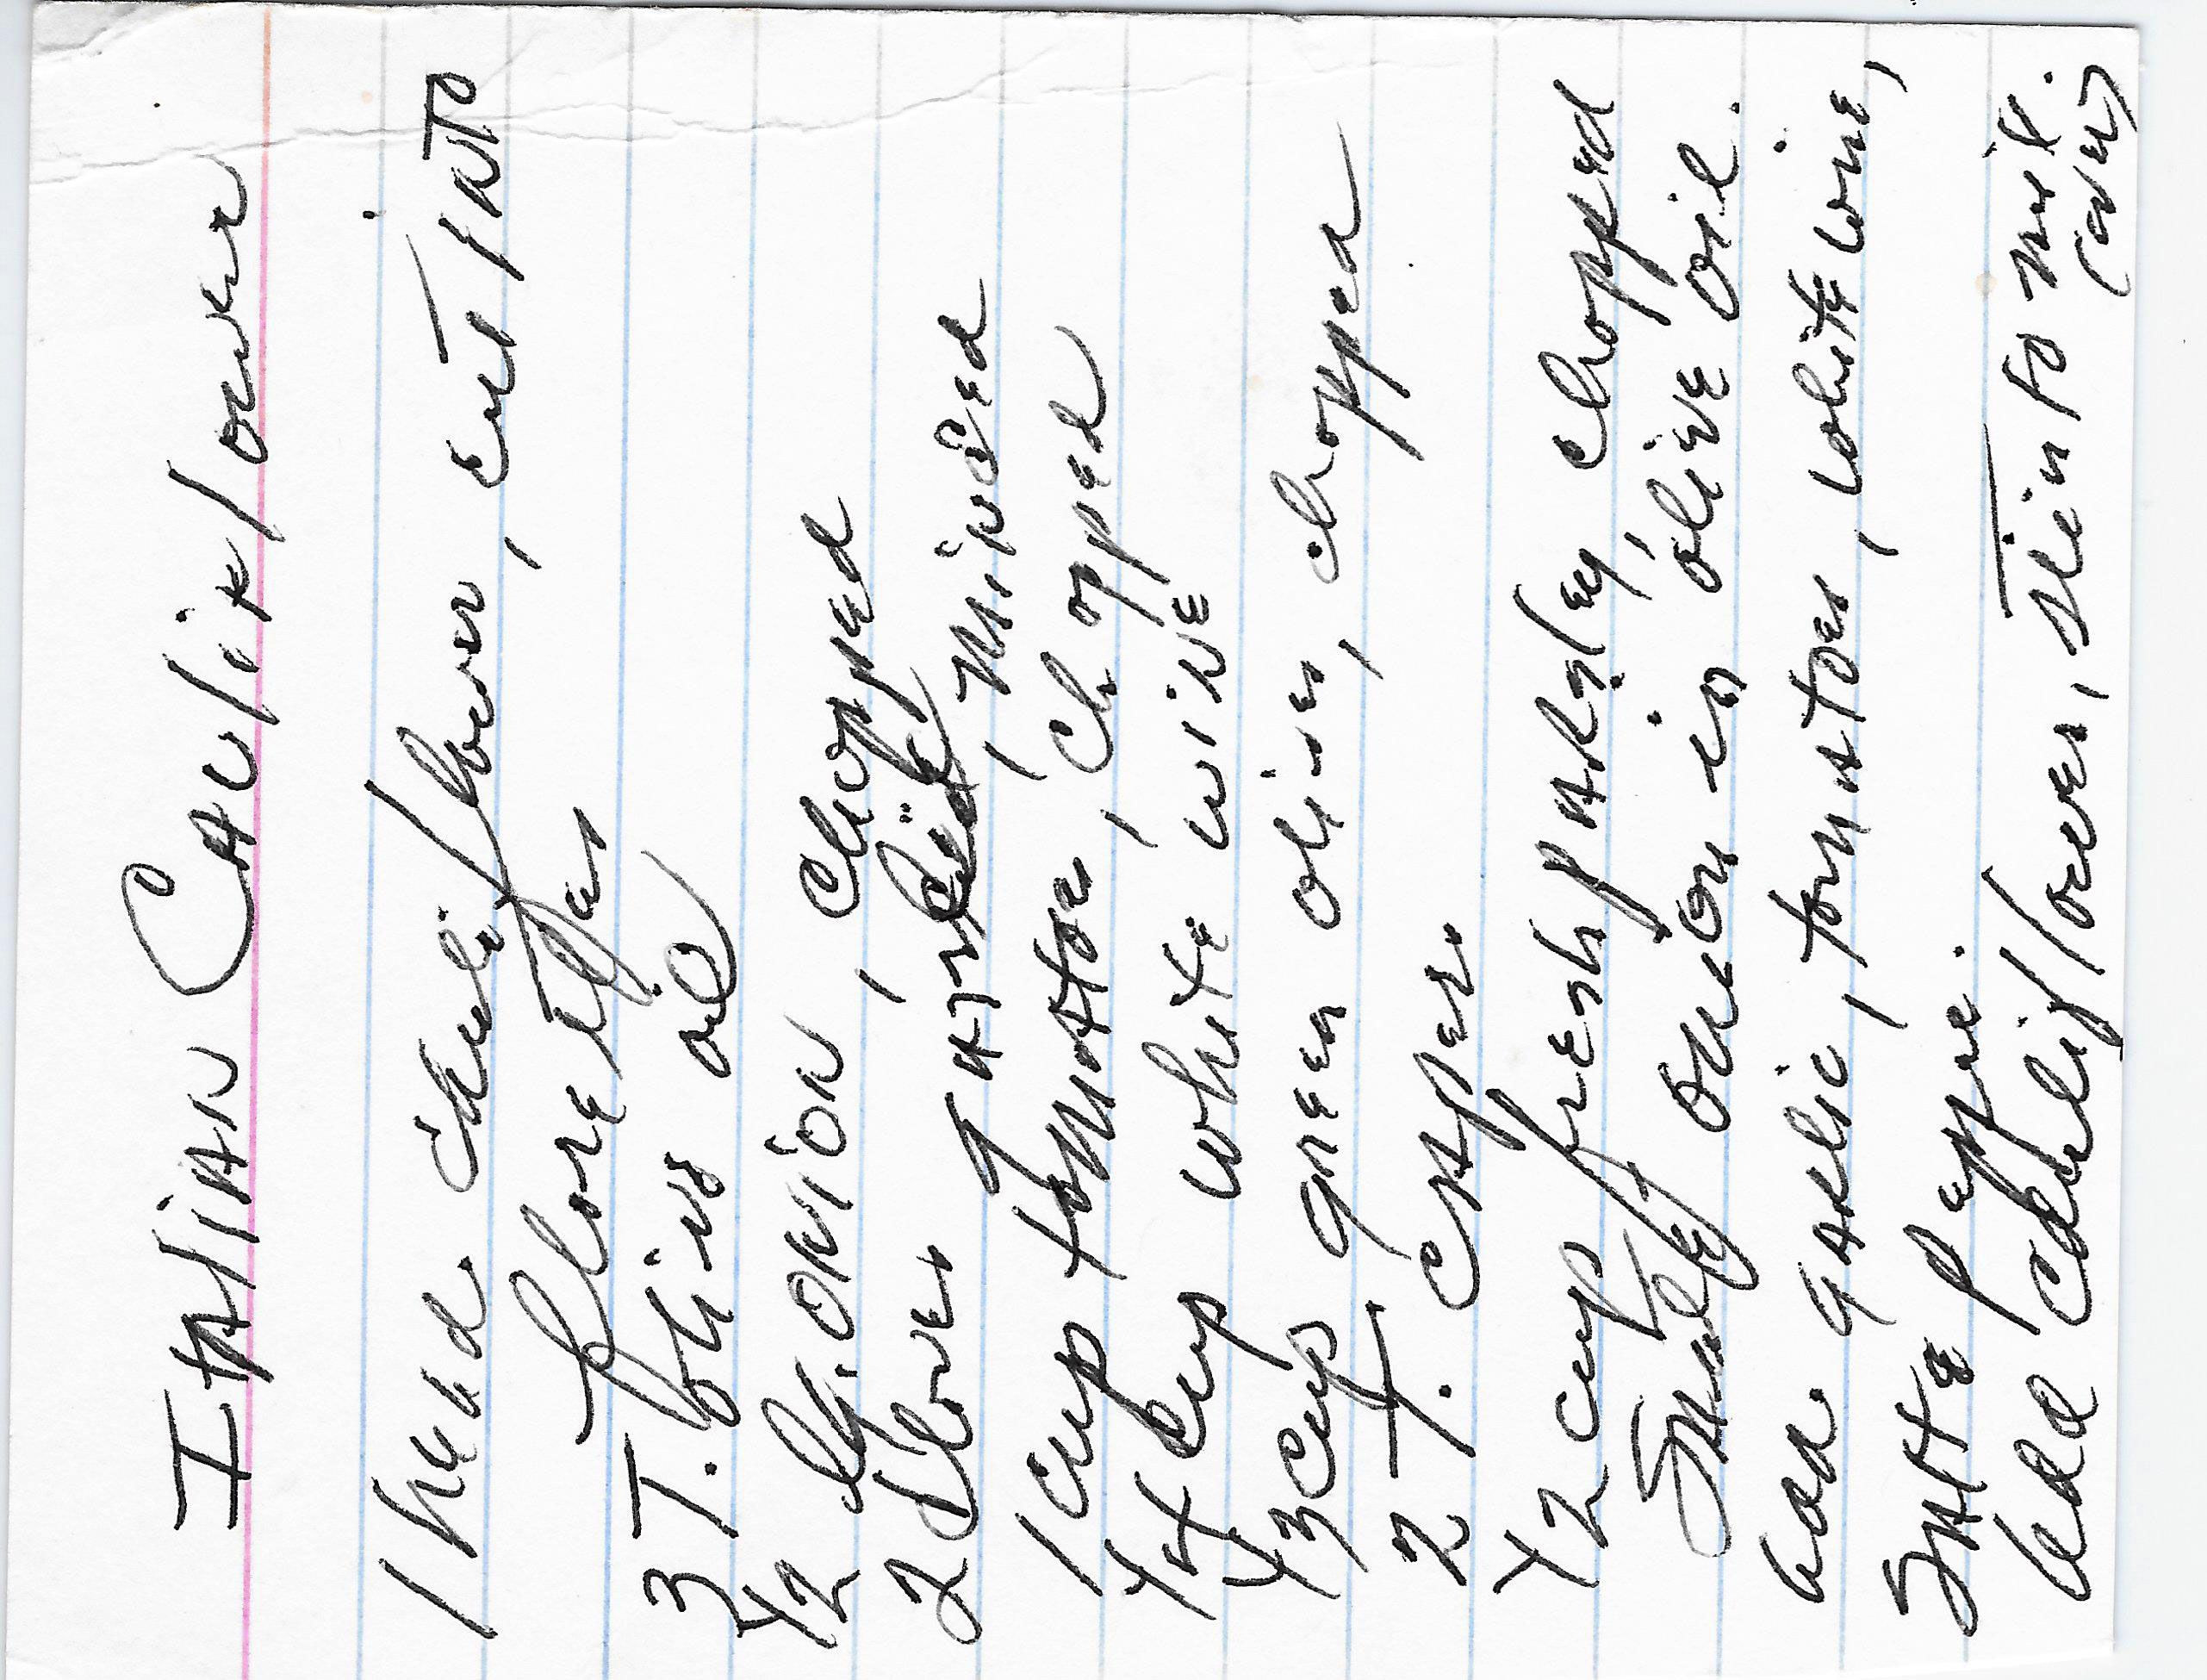 Italian Cauliflower
1 head cauliflower, cut into
florettes
3 T. olive oil
1/2 lg. onion, chopped
2 cloves garlic, minced
1 cup tomatoes, chopped
1/4 cup white wine
1/3 cup green olives, chopped
2 T. capers
1/2 cup fresh parsley, chopped
Sauté onion in olive oil.
Add garlic, tomatoes, white wine,
salt & pepper.
Add cauliflower, stir to mix.
(over)